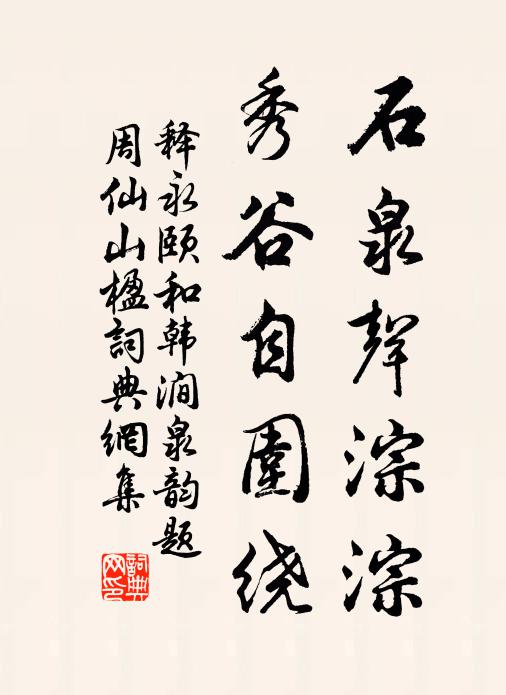 石泉聲淙淙
秀谷自圍绕
释永颐和韩涧泉韵题
周仙山楹詞典網集
詞典
网印